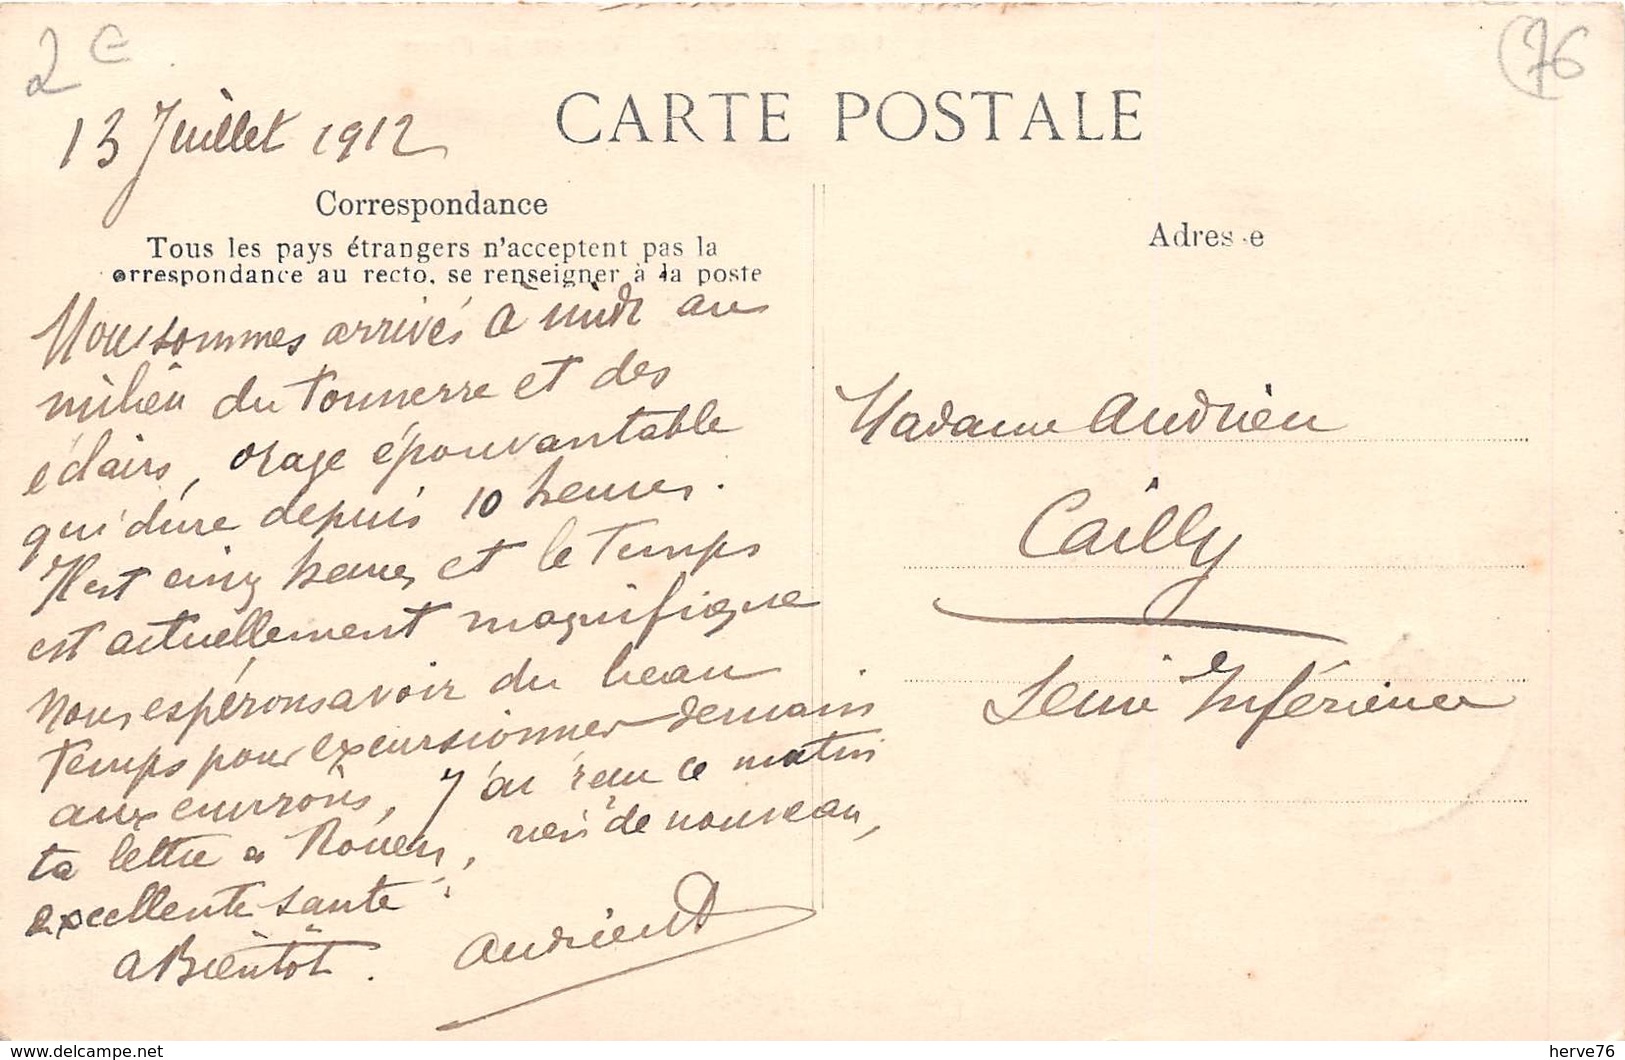 2€
76
13 Juillet 1912
CARTE POSTALE
Correspondance
Tous les pays étrangers n'acceptent pas la
orrespondance au recto, se renseigner à la poste
Nous sommes arrivés à midi au
milieu du tonnerre et des
éclairs, orage épouvantable
qui dure depuis 10 heures.
Il est cinq heures et le temps
est actuellement magnifique
Nous espérons avoir du beau
temps pour excursionner demain
aux environs, j'ai reçu ce matin
ta lettre à Rouen, rien de nouveau,
excellente santé.
a Bientôt. Andrieu
Adresse
Madame Andrieu
Cailly
Seine Inférieure
delcampe.net
herve76